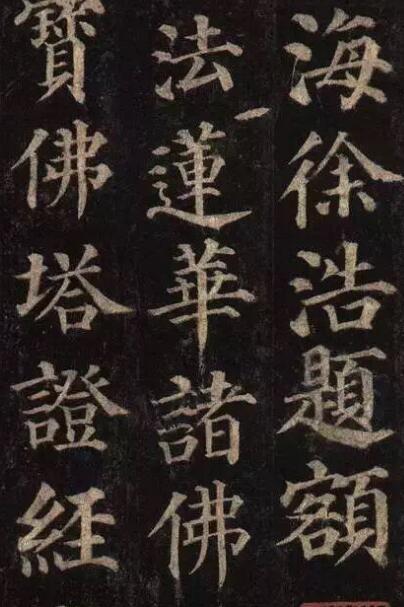 海徐浩題額
法蓮華諸佛
寶佛塔證經